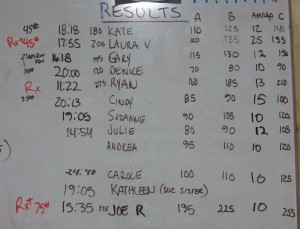 RESULTS
A B AMRAP C
45# 18:18 180 KATE 110 125 12 140
Rx 45# 17:55 200 LAURA V 120 135 25 155
16:18 GARY 115 130 12 150
20:00 120 DENICE 70 80 10 90
Rx 11:22 275 RYAN 160 185 13 210
20:13 CINDY 85 90 15 100
19:05 SUZANNE 90 105 10 120
14:54 JULIE 80 90 12 105
ANDREA 95 110 10 120
CAROLE 100 110 10 125
19:05 KATHLEEN (SUE SISTER)
Rx+ 75# 15:35 JOE R 195 225 10 255